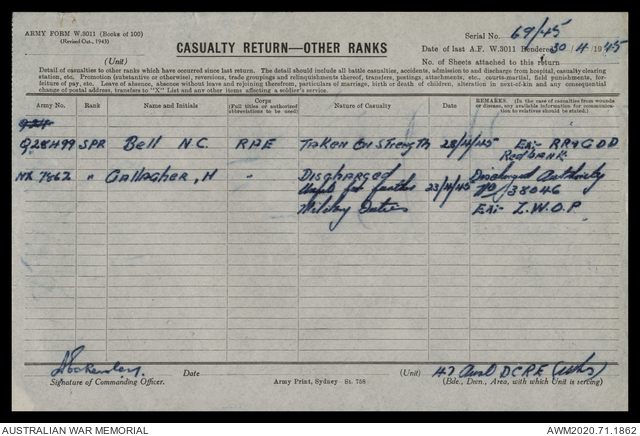 ARMY FORM W.3011 (Books of 100)
(Revised Oct., 1943)
Serial No. 69/45
CASUALTY RETURN—OTHER RANKS
Date of last A.F. W.3011 Rendered 30/4/1945
(Unit)
No. of Sheets attached to this return
Detail of casualties to other ranks which have occurred since last return. The detail should include all battle casualties, accidents, admission to and discharge from hospital, casualty clearing
station, etc. Promotion (substantive or otherwise), reversions, trade groupings and relinquishments thereof, transfers, postings, attachments, etc., courts-martial, field punishments, for-
feiture of pay, etc. Leave of absence, absence without leave and rejoining therefrom, particulars of marriage, birth or death of children, alteration in next-of-kin and any consequential
change of postal address, transfers to "X" List and any other items affecting a soldier's service.
Army No. Rank Name and Initials Corps (Full titles or authorized abbreviations to be used) Nature of Casualty Date REMARKS. (In the case of casualties from wounds or disease, any available information as to existing disability must be shown.)
Q28499 SPR Bell N.C. RAE Taken on Strength 28/4/45 Ex:- RR&GDD
Redbank
NX 7862 " Gallagher, H " Discharged 23/4/45 Discharged Authority
for further No/38046
Military Duties Ex:- L.W.O.P
Signature of Commanding Officer.
Date
Army Print, Sydney St. 758
(Unit) 47 Aust DCRE (Wks)
(Bde., Dwn., Area, with which Unit is serving)
AUSTRALIAN WAR MEMORIAL
AWM2020.71.1862